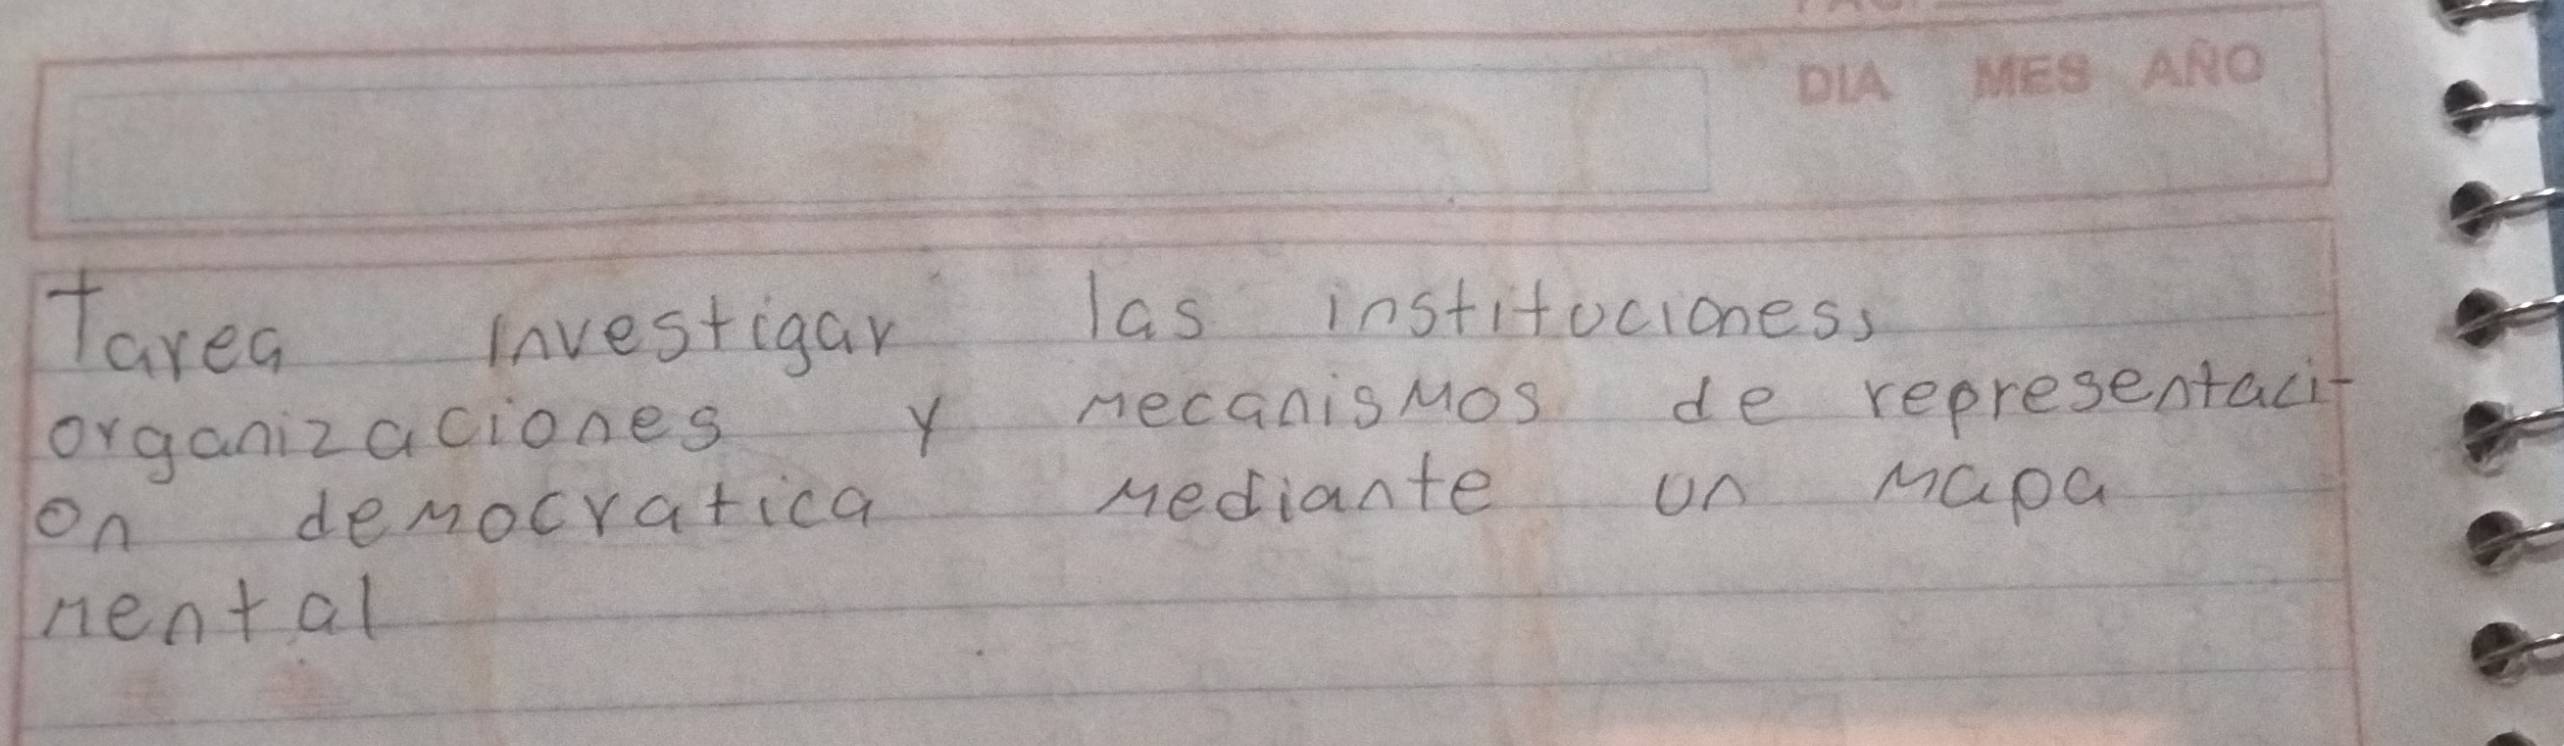 DIA MES AÑO
Tarea investigar las instituciones,
organizaciones y mecanismos de representaci-
on democratica mediante un mapa
mental